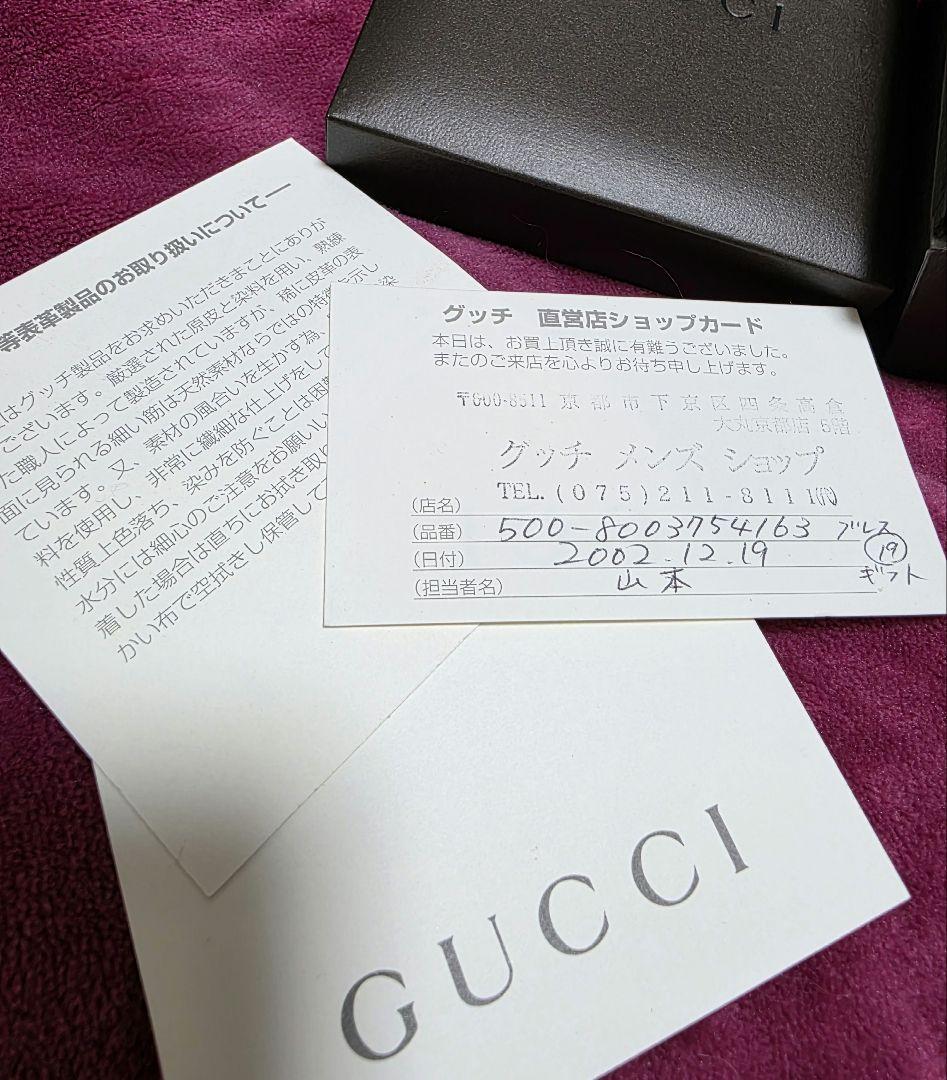 GUCCI
等表革製品のお取り扱いについてー
はグッチ製品をお求めいただきまことにありが
ございます。厳選された原皮と染料を用い、熟練
た職人によって製造されていますが、稀に皮革の表
面に見られる細い筋は天然素材ならではの特
示し
ています。又、素材の風合いを生かす為
染
料を使用し、非常に繊細な仕上げをして
性質上色落ち、染みを防ぐことは困難
水分には細心のご注意をお願いい
着した場合は直ちにお拭き取り
かい布で空拭きし保管して
グッチ 直営店ショップカード
本日は、お買上頂き誠に有難うございました。
またのご来店を心よりお待ち申し上げます。
〒600-8511 京都市下京区四条高倉
大丸京都店 5階
グッチ メンズ ショップ
TEL.(075)211-8111㈹
(店名)
(品番) 500-8003754163 ブレス
(日付) 2002.12.19 19
(担当者名) 山本 ギフト
GUCCI